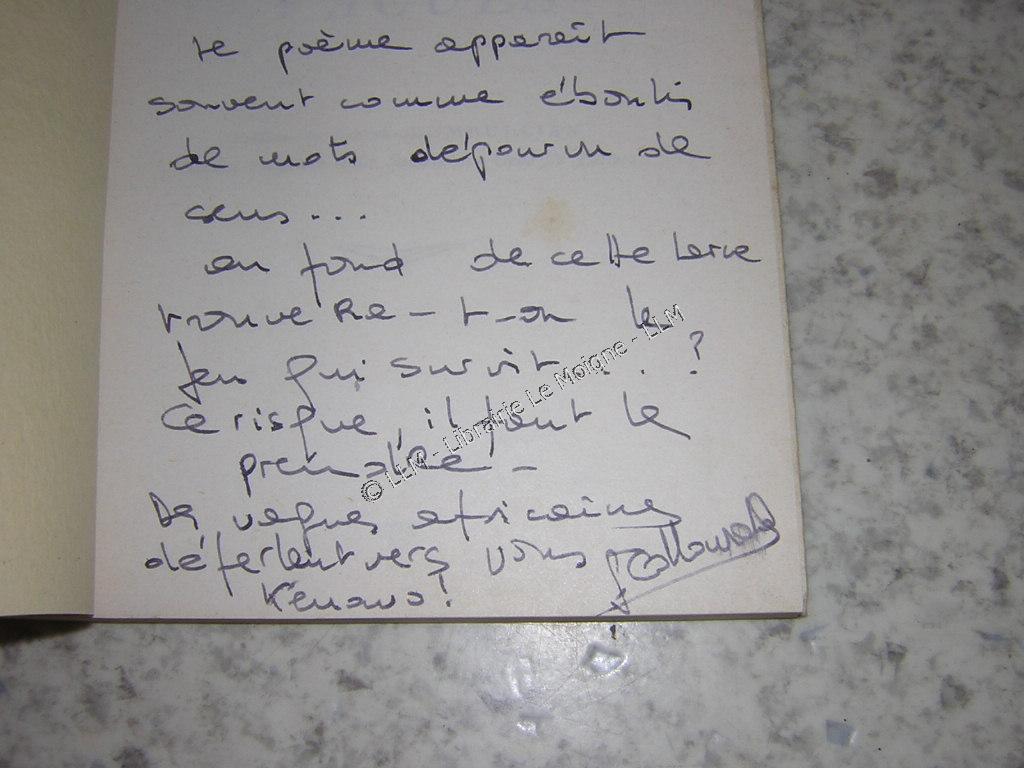 le poème apparaît
souvent comme éboulis
de mots dépourvu de
sens...
au fond de cette
trouveRa-t-on le
feu qui survit...?
Ce risque, il faut le
prendre -
Des vagues africaines
déferlent vers vous
Kenavo!
© LLM - Librairie Le Moigne - LLM